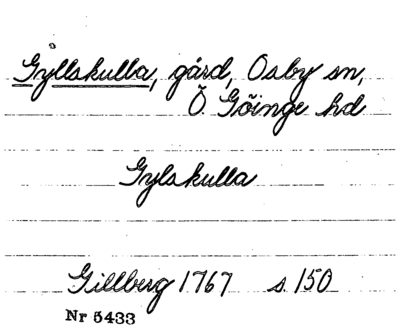 Gyllskulla, gård, Osby sn,
Ö. Göinge hd
Gylskulla
Gillberg 1767 s. 150
Nr 5433